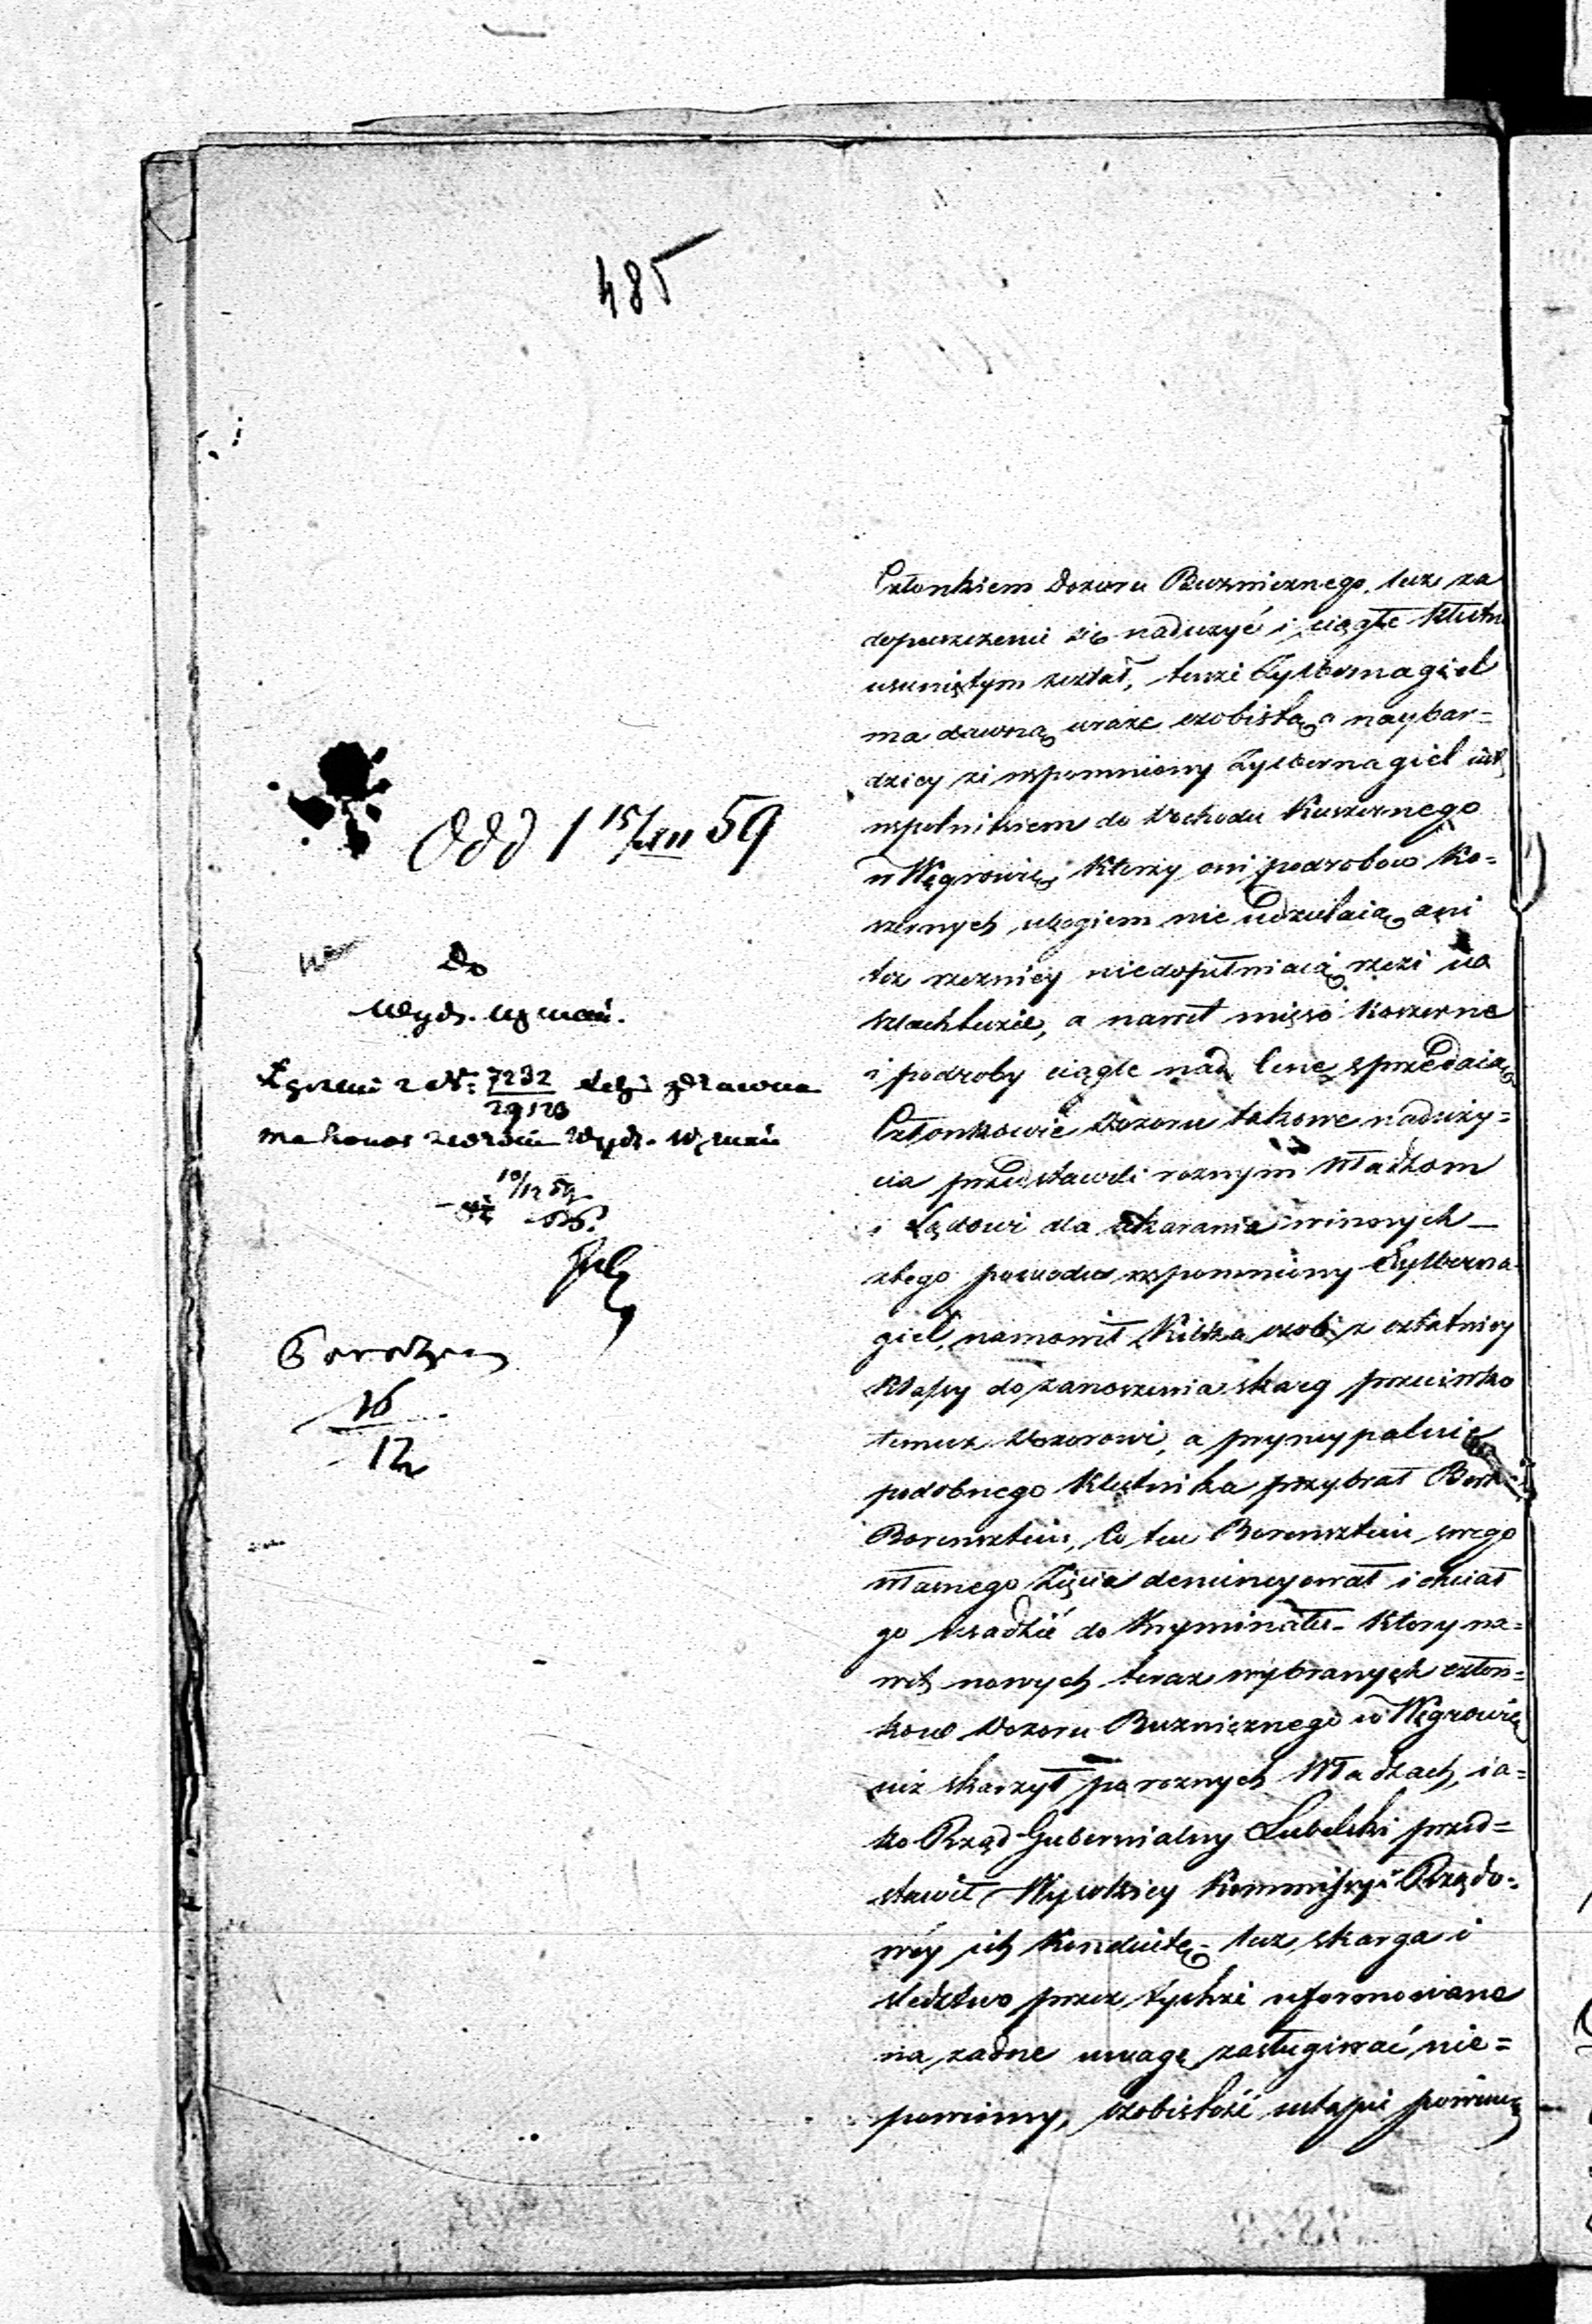 485
Odd 1 15/XII 59
Do
Wydz. Wyznań.
7232
29126
Wydz. Wyznań
10/12 59
16
12
Członkiem Dozoru Buznicznego, lecz za
dopuszczenie się nadużyć i ciągłe Kłutn
usuniętym został, tenże Zylbernagiel
ma dawną uraże ozobistą, a naybar=
dziey że wspomniony Zylbernagiel iest
wspolnikiem do Dochodu Koszernego
w Węgrowie, Ktorzy oni podrobow Ko=
szernych ubogiem nie udzielaią, ani
też rzeznicy niedopełniaią rzezi na
szlachtuzie, a nawet mięso Koszerne
i podroby ciągle nad Cenę sprzedaią
Członkowie Dozoru takowe naduży=
cia przedstawili roznym Władzom
i Sądowi dla ukarania winnych —
ztego powodu wspomniony Zylberna
giel, namowił Kilka ozob z ostatniey
Klassy do zanoszenia skarg przeciwko
temuż Dozorowi, a pryncypalnie
podobnego Kłutnika przybrał Berk
Borensztein, Co ten Borensztein swego
własnego Zięcia denuncyował i chciał
go wsadzić do Kryminału - Ktory na=
wet nowych teraz wybranych człon=
kow Dozoru Buzniczego w Węgrowie
iuż skarzył po roznych Władzach, ia=
ko Rząd Gubernialny Lubelski przed=
stawił Wysokiey Kommissyi Rządo=
wéy ich Konduitę - lecz skarga i
sledztwo przez tychże uformowane
na zadne uwagę zasługiwać nie=
powinny, ozobistość ustąpić powinną